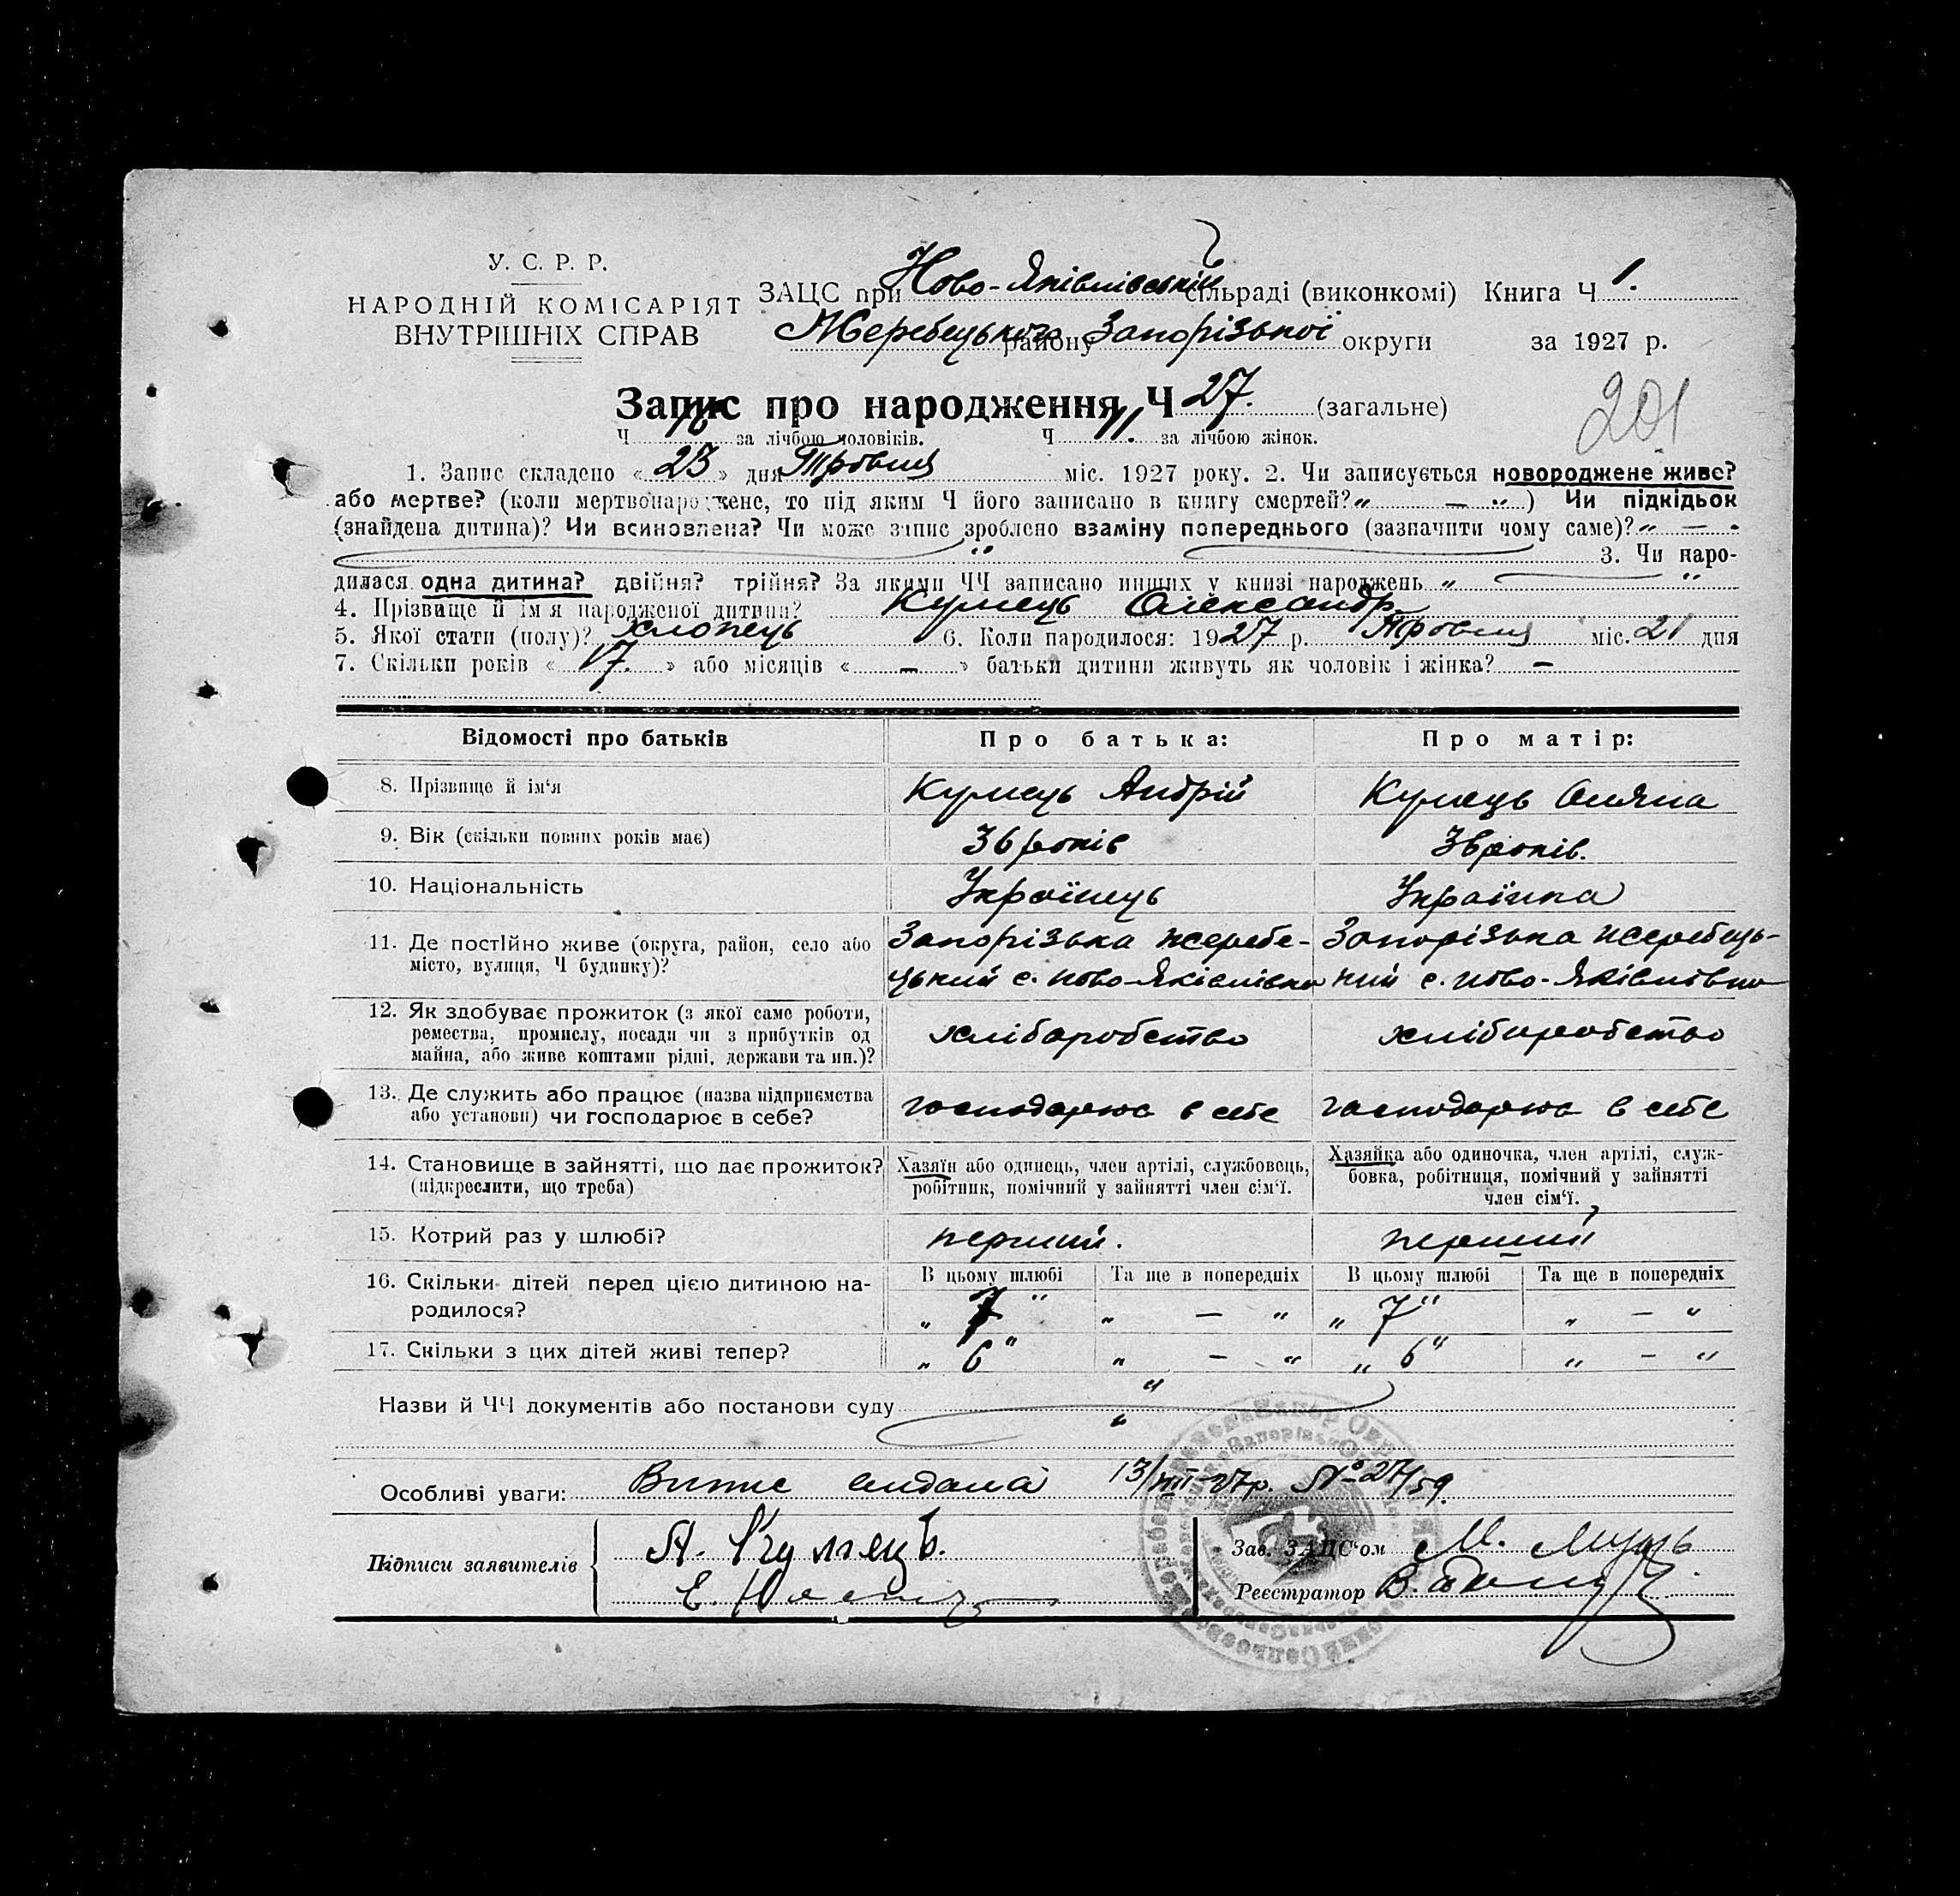 У. С. Р. Р.
НАРОДНІЙ КОМІСАРІЯТ
ВНУТРІШНІХ СПРАВ
ЗАЦС при Ново-Яківлівській сільраді (виконкомі) Книга Ч 1.
Жеребецького району Запорізької округи за 1927 р.
201
Запис про народження Ч 27. (загальне)
Ч 16 за лічбою чоловіків. Ч 11. за лічбою жінок.
1. Запис складено « 23 » дня Травня міс. 1927 року. 2. Чи записується новороджене живе?
або мертве? (коли мертвонароджене, то під яким Ч його записано в книгу смертей? „ — „ ) Чи підкідьок
(знайдена дитина)? Чи всиновлена? Чи може запис зроблено взаміну попереднього (зазначити чому саме)? „ —
„ 3. Чи наро-
дилася одна дитина? двійня? трійня? За якими ЧЧ записано инших у книзі народжень „ „
4. Прізвище й ім'я народженої дитини? Кумець Олександр
5. Якої стати (полу)? хлопець 6. Коли народилося: 1927 р. Травня міс. 21 дня
7. Скільки років « 17. » або місяців « — » батьки дитини живуть як чоловік і жінка? —
Відомості про батьків Про батька: Про матір:
8. Прізвище й ім'я Кумець Андрій Кумець Оляна
9. Вік (скільки повних років має) 36 років 36 років.
10. Національність Українець Українка
11. Де постійно живе (округа, район, село або Запорізька жеребе- Запорізька жеребець-
місто, вулиця, Ч будинку)? цький с. ново-Яківлівка кий с. ново-Яківлівка
12. Як здобуває прожиток (з якої саме роботи,
ремества, промислу, посади чи з прибутків од хліборобство хліборобство
майна, або живе коштами рідні, держави та ин.)?
13. Де служить або працює (назва підприємства
або установи) чи господарює в себе? господарює в себе господарює в себе
14. Становище в зайнятті, що дає прожиток? Хазяїн або одинець, член артілі, службовець, Хазяйка або одиночка, член артілі, служ-
(підкреслити, що треба) робітник, помічний у зайнятті член сім'ї. бовка, робітниця, помічний у зайнятті
член сім'ї.
15. Котрий раз у шлюбі? перший. перший
16. Скільки дітей перед цією дитиною на- В цьому шлюбі Та ще в попередніх В цьому шлюбі Та ще в попередніх
родилося? „ 7 “ „ — “ „ 7 “ „ — “
17. Скільки з цих дітей живі тепер? „ 6 “ „ — “ „ 6 “ „ — “
Назви й ЧЧ документів або постанови суду „
„
Особливі уваги: Випис видала 13/VIII-27р. № 27/59.
Підписи заявителів А. Кумець. Зав. ЗАЦС'ом М.
Е. Реєстратор В.